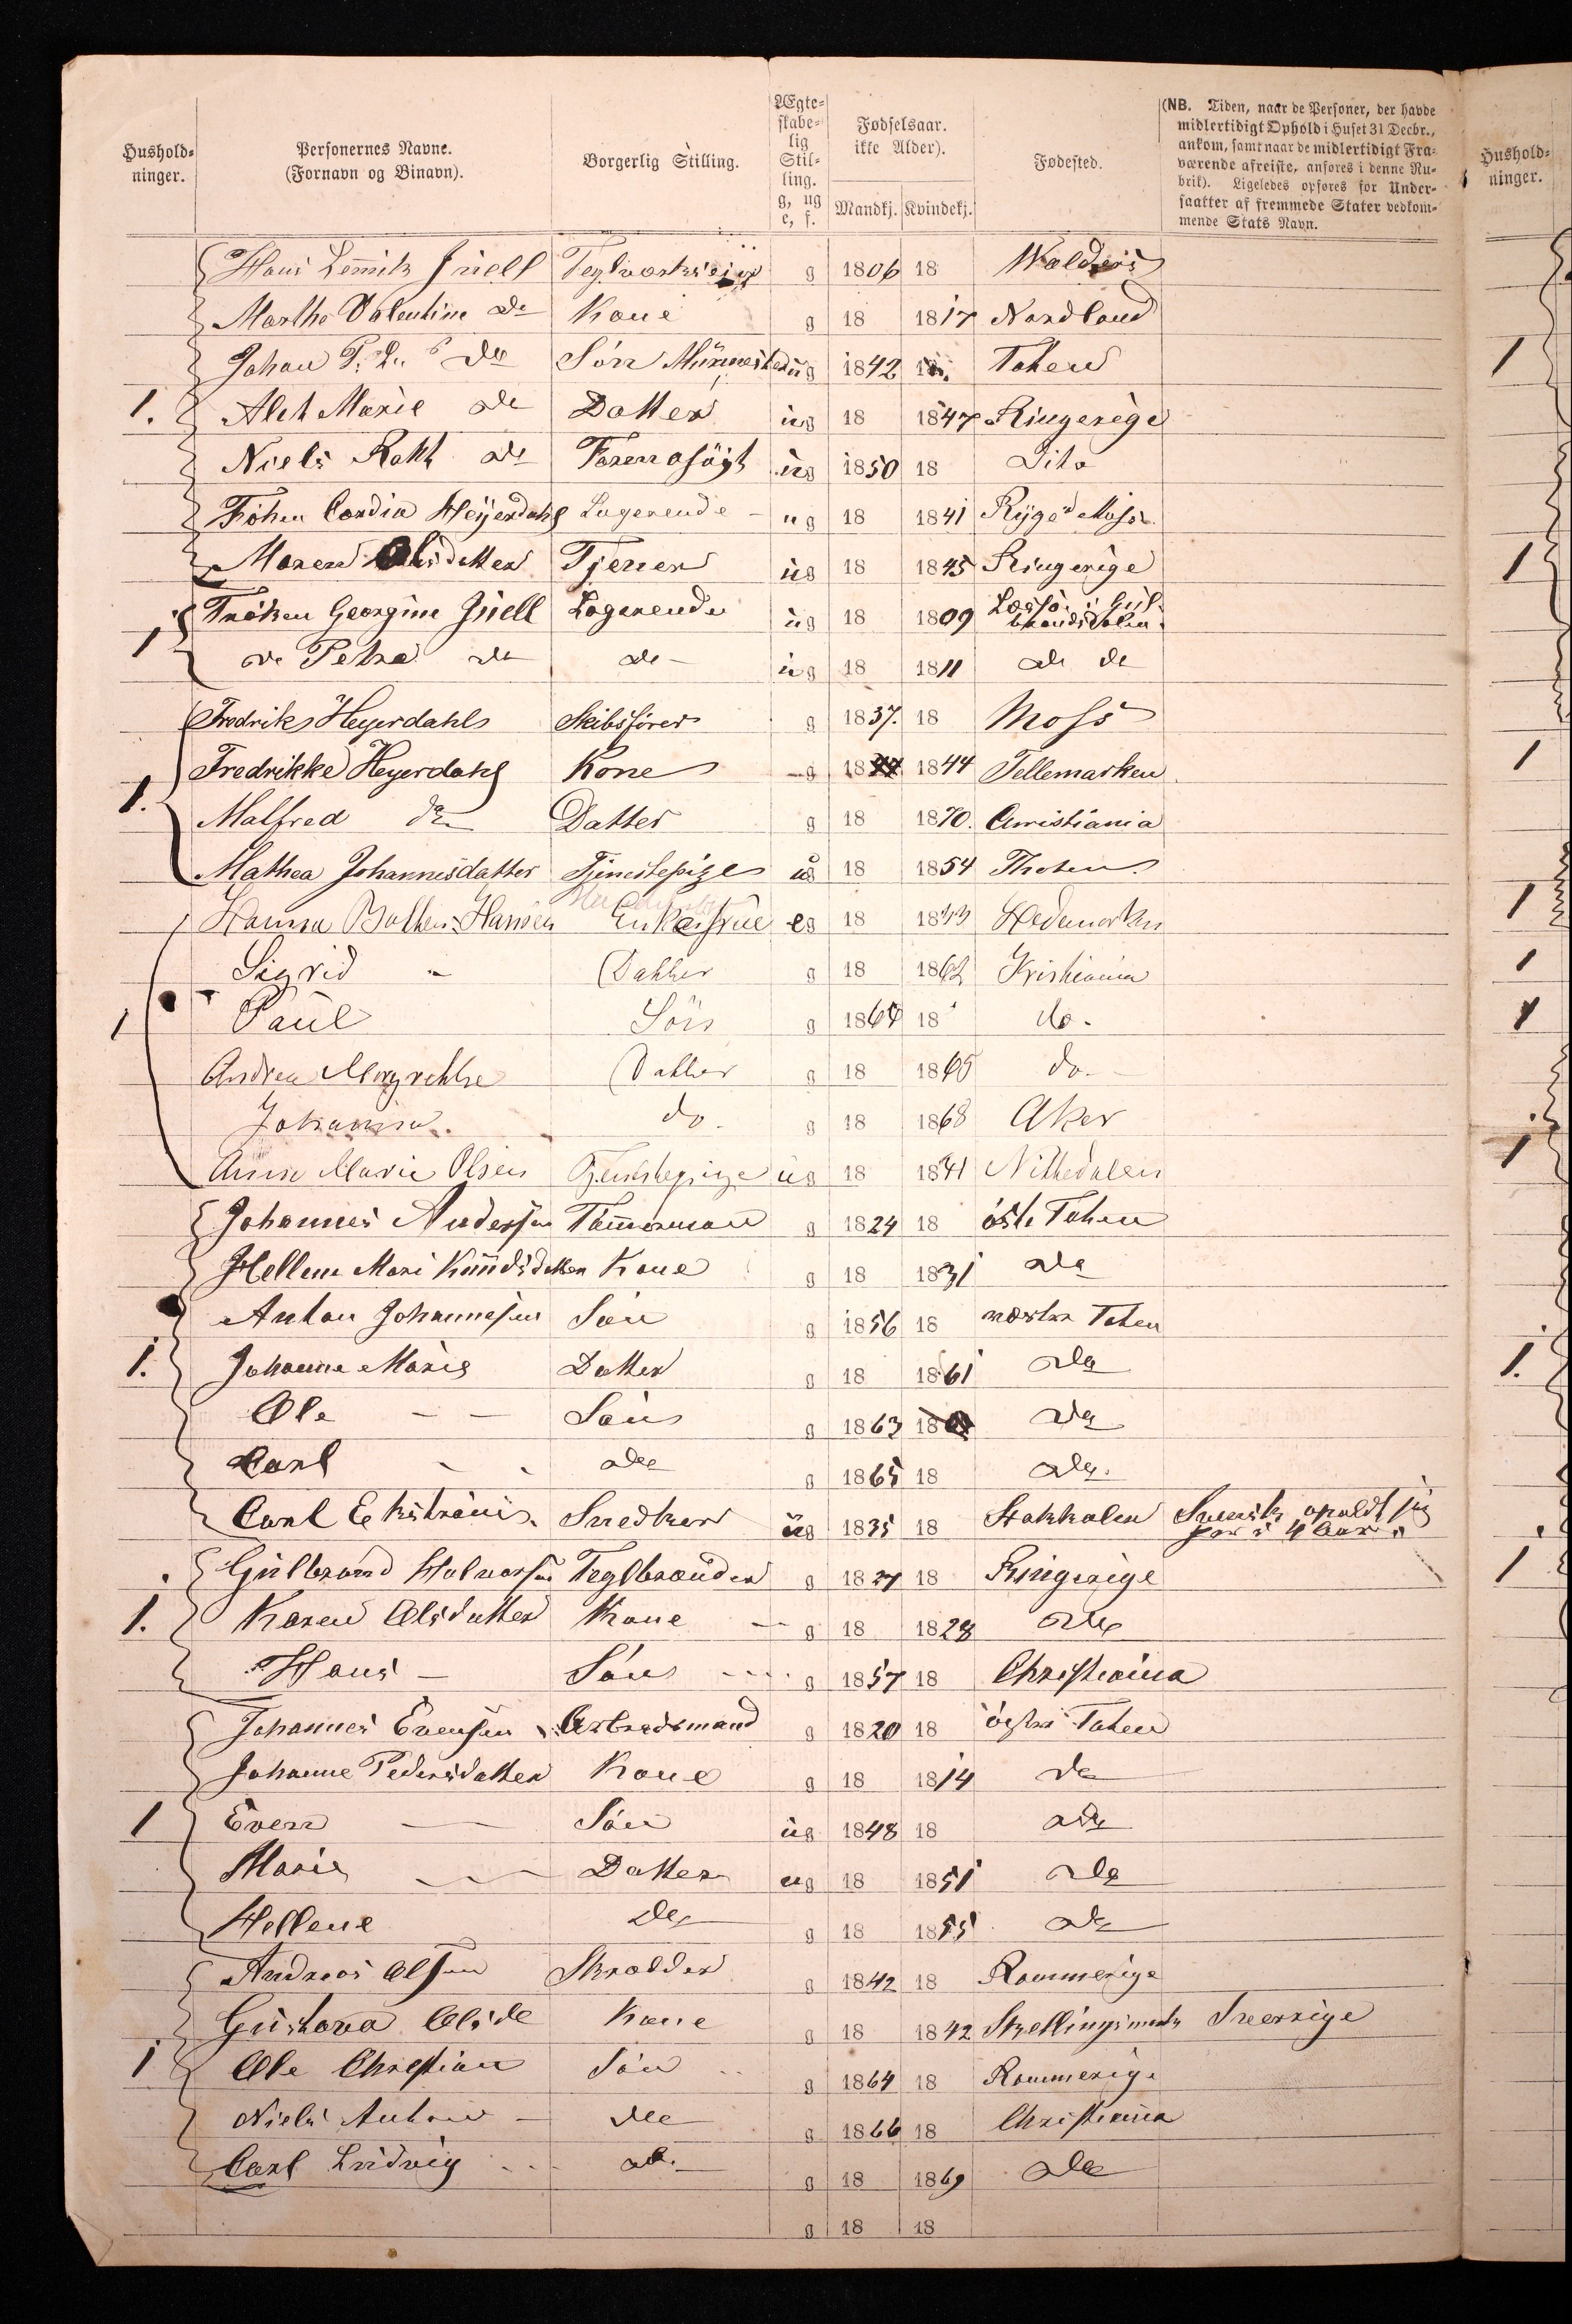 Hushold-
ninger.
Personernes Navne.
(Fornavn og Binavn).
Borgerlig Stilling.
Ægte-
skabe-
lig
Stil-
ling.
g, ug
e, f.
Fødselsaar.
ikke Alder).
Mandkj. Kvindekj.
Fødested.
(NB. Tiden, naar de Personer, der havde
midlertidigt Ophold i Huset 31 Decbr.,
ankom, samt naar de midlertidigt Fra-
værende afreiste, anføres i denne Ru-
brik). Ligeledes opføres for Under-
saatter af fremmede Stater vedkom-
mende Stats Navn.
Hushold-
ninger.
Hans Juell g 1806 18
Marthe Valentine do Kone g 18 1817 Nordland
Johan do Søn ug 1842 Toten 1
1. Alet Marie do Datter ug 18 1847 Ringerige
Niels do ug 1850 18 Dito
Cordia Heÿerdahl Logerende ug 18 1841 Rÿge Moss
Maren Olsdatter Tjener ug 18 1845 Ringerige 1
Frøken Georgine Juell Logerende ug 18 1809
1 do Petra do do ug 18 1811 do do
Fredrik Heyerdahl Skibsfører g 1837. 18 Moss
Fredrikke Heyerdahl Kone g 18 1844 Tellemarken 1
1. Malfred do Datter g 18 1870. Christiania
Mathea Johannesdatter Tjenestepige ug 18 1854 Thoten
Hanna Hansen Enkefrue eg 18 1833 Hedemarken 1
Sigrid Datter g 18 1862 Kristiania 1
1 Paul Søn g 1864 18 do. 1
Andrea Margrethe Datter g 18 1865 do.
Johanna. do. g 18 1868 Aker
Anna Marie Olsen Tjenestepige ug 18 1841 Nittedalen 1
Johannes Andersen Tømmerman g 1824 18 øste Toten
Hellene Mari Knudsdatter Kone g 18 1831 do
Anton Johannesen Søn g 1856 18 vestre Toten
1. Johanne Marie Datter g 18 1861 do 1.
Ole Søn g 1863 18 do
Carl do g 1865 18 do.
Carl Snedker ug 1835 18 Stokholm Svensk opholdt sig
her i 4 Aar.
Gulbrand Halvorsen Teglbrænder g 1827 18 Ringerige 1
1. Karen Olsdatter Kone g 18 1828 do
Hans Søn g 1857 18 Christiania
Johannes Evensen Arbeidsmand g 1820 18 østre Toten
Johanne Pedersdatter Kone g 18 1814 do
1 Even Søn ug 1848 18 do
Marie Datter ug 18 1851 do
Hellene do g 18 1855 do
Andreas Olsen Skrædder g 1842 18 Rommerige
Gustava Olsdt Kone g 18 1842 Sverrige
1 Ole Christian Søn g 1864 18 Rommerige
Niels Anton do g 1866 18 Christiania
Carl Ludvig do. g 18 1869 do
g 18 18